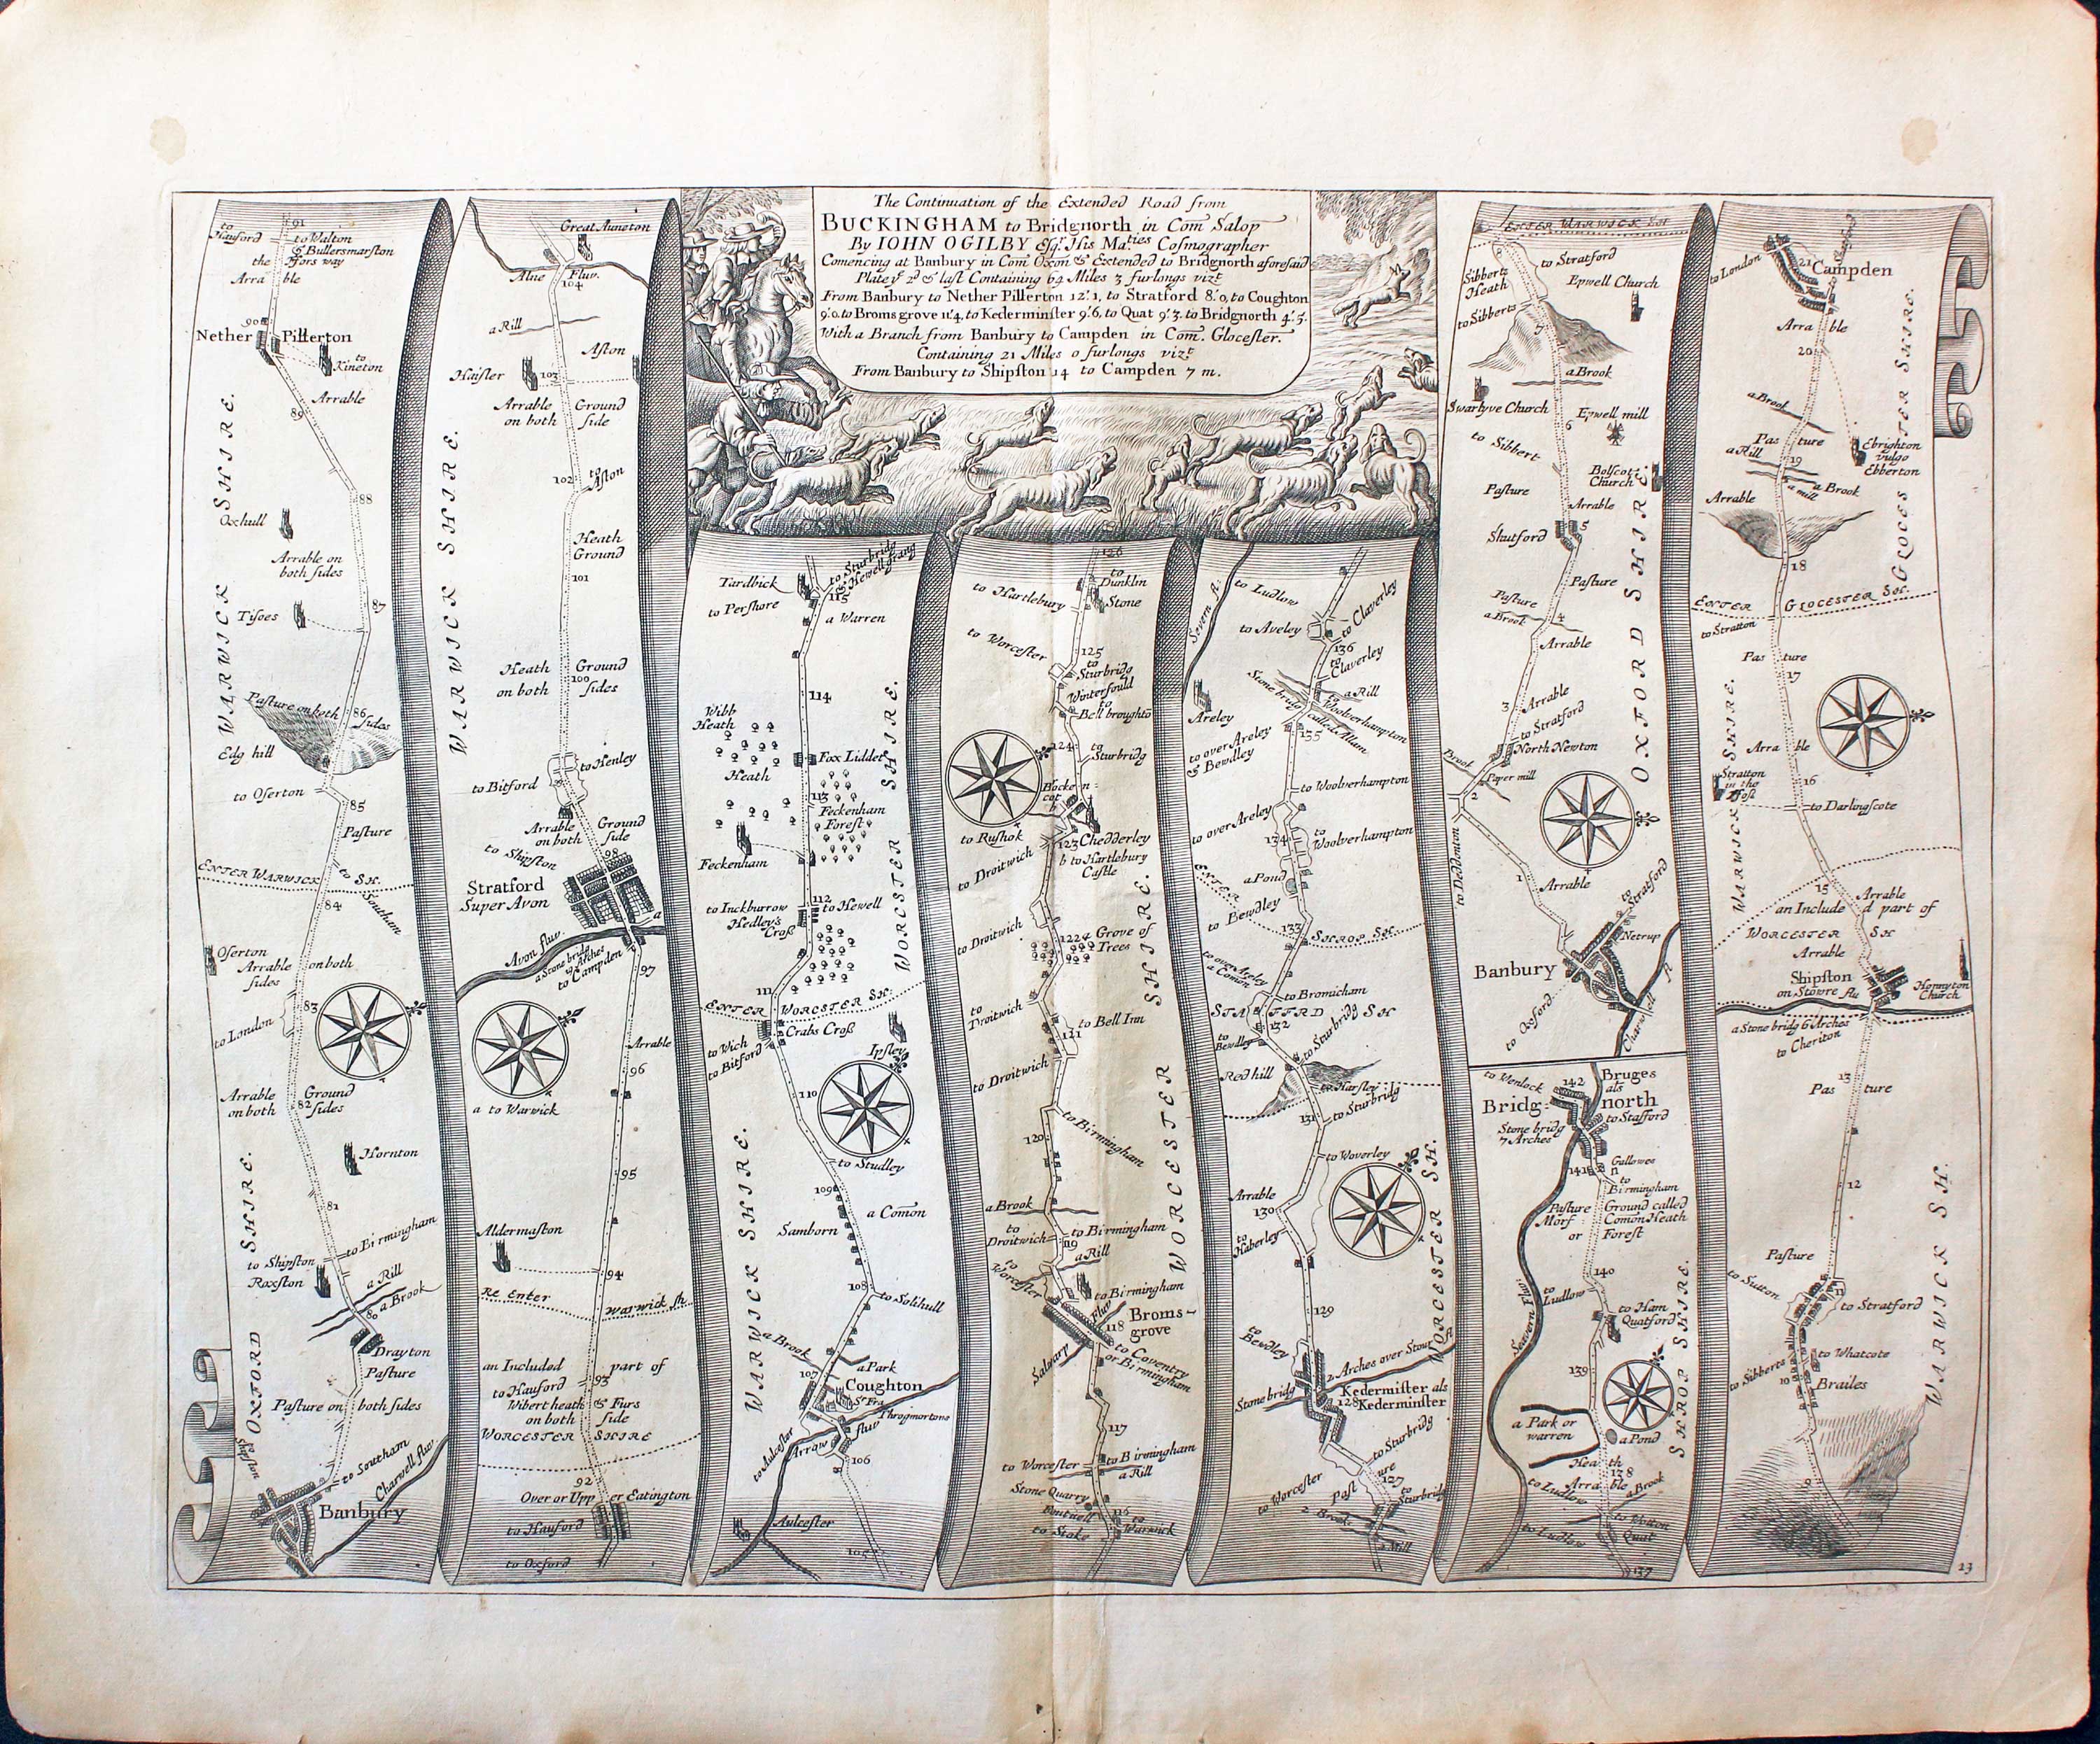 The Continuation of the Extended Road from
BUCKINGHAM to Bridgnorth in Com Salop
By IOHN OGILBY Esqr. His Maties Cosmographer
Comencing at Banbury in Com. Oxon & Extended to Bridgnorth aforesaid
Plate ye 2d & last Containing 69 Miles 3 furlongs vizt
From Banbury to Nether Pillerton 12'1, to Stratford 8'0, to Coughton
9'0. to Bromsgrove 11'4, to Kederminster 9'6, to Quat 9'3. to Bridgnorth 4'5.
With a Branch from Banbury to Campden in Com. Glocester.
Containing 21 Miles 0 furlongs vizt
From Banbury to Shipston 14 to Campden 7 m.
91
to Hauford
to Walton
& Butlersmarston
the ffors way
Arra ble
90
Nether Pillerton
to Kineton
Arrable
89
88
Oxhull
Arrable on
both sides
87
Tisoes
WARWICK SHIRE.
Pasture on both sides
86
Edg hill
to Oserton
85
Pasture
ENTER WARWICK SH.
to Southam
84
Oserton
Arrable on both
sides
83
to London
Arrable Ground
on both sides
82
Hornton
81
OXFORD SHIRE.
to Birmingham
to Shipston
Roxston
a Rill
80 a Brook
Drayton
Pasture
Pasture on both sides
to Southam
Charwell fluv.
Banbury
Great Auneton
Alne Fluv.
104
a Rill
Aston
Haisler
103
Arrable Ground
on both side
to Aston
102
WARWICK SHIRE.
Heath
Ground
101
Heath Ground
on both sides
100
to Henley
to Bitford
99
Arrable Ground
on both side
to Shipston
98
Stratford
Super Avon
a
Avon fluv.
a Stone bridg
to Campden
97
Arrable
96
a to Warwick
95
Aldermaston
94
Re Enter Warwick sh.
an Included part of
to Hauford
93
Wibert heath & Furs
on both side
WORCESTER SHIRE
92
Over or Upper Eatington
to Hauford
to Oxford
to Sturbridg
& Hewell grang
Tardbick
115
to Pershore
a Warren
114
Wibb
Heath
Fox Liddet
Heath
113
Feckenham
Forest
Feckenham
112
to Inckburrow
to Hewell
Hedley's
Cross
WORCSTER SHIRE.
111
ENTER WORCSTER SH.
Crabs Cross
to Wich
to Bitford
Ipsley
110
to Studley
109
a Comon
Samborn
WARWICK SHIRE.
108
to Solihull
a Brook
a Park
107
Coughton
Sr Fra.
Throgmortons
Arrow fluv
to Aulcester
106
Aulcester
105
126
to Dunklin
to Hartlebury
Stone
to Worcester
125
to Sturbridg
Winterfould
to Bell broughto
124
to Sturbridg
to Rushok
123
Chedderley
b to Hartlebury
Castle
to Droitwich
122
a Grove of
Trees
to Droitwich
to Droitwich
to Bell Inn
121
to Droitwich
WORCESTER SHIRE.
to Birmingham
120
a Brook
to Droitwich
to Birmingham
119
a Rill
to Worcester
to Birmingham
Fluv
118
Broms-
grove
Salwarp
to Coventry
or Birmingham
117
to Worcester
to Birmingham
a Rill
Stone Quarry
116
Bontnell
to Stoke
to Warwick
Severn fl.
to Ludlow
to Claverley
to Aveley
136
to Claverley
a Rill
Stone bridg called Allam
to Woolverhampton
Areley
135
to over Areley
& Bewdley
to Woolverhampton
to over Areley
134
to Woolverhampton
a Pond
ENTER
to Bewdley
133
SHROP SH.
to over Areley
a Comon
to Bromicham
STAFFRD SH
132
to Bewdley
to Sturbridg
Red hill
to Harsley
131
to Sturbridg
to Woverley
Arrable
130
to Haberley
WORCESTER SH.
129
to Bewdley
2 Arches over Stour fl
Stone bridg
Kedermister als
128 Kederminster
to Sturbridg
to Worcester
Past ure
127
to Sturbridg
2 Brooks
a Mill
ENTER WARWICK SH
8
to Stratford
Sibberts
Heath
Epwell Church
to Sibberts
7
a Brook
Swarlyve Church
Epwell mill
6
to Sibbert
Bolscot
Church
Pasture
Arrable
Shutford
5
Pasture
Pasture
a Brook
4
Arrable
OXFORD SHIRE.
3
Arrable
to Stratford
North Newton
Brook
Paper mill
2
to Deddenton
1
Arrable
to Stratford
Netrup
Banbury
to Oxford
Charwell fl
Bruges
als
to Wenlock
142
Bridg-north
to Stafford
Stone bridg
7 Arches
141
Gallowes
to Birmingham
Pasture Ground called
Morf Comon Heath
or Forest
140
to Ludlow
Seavern Fluv.
to Ham
Quatford
139
SHROP SHIRE.
a Park or
warren
a Pond
Hea th
138
Arra ble
to Ludlow
a Brook
to Ludlow
to Wotton
Quat
137
to London
21 Campden
Arra ble
20
a Brook
Pas ture
a Rill
19
Ebrighton
vulgo
Ebberton
a mill
a Brook
Arrable
18
GLOCESTER SHIRE.
ENTER GLOCESTER SH.
to Stratton
Pas ture
17
Arra ble
Stratton
in the
ffoss
16
to Darlingscote
WARWICK SHIRE.
15
Arrable
an Include d part of
WORCESTER SH
Arrable
Shipston
on Stowre flu
Honnyton
Church
a Stone bridg 6 Arches
to Cheriton
13
Pas ture
12
Pasture
to Sutton
11
to Stratford
to Whatcote
to Sibberts
10
Brailes
WARWICK SH.
9
13